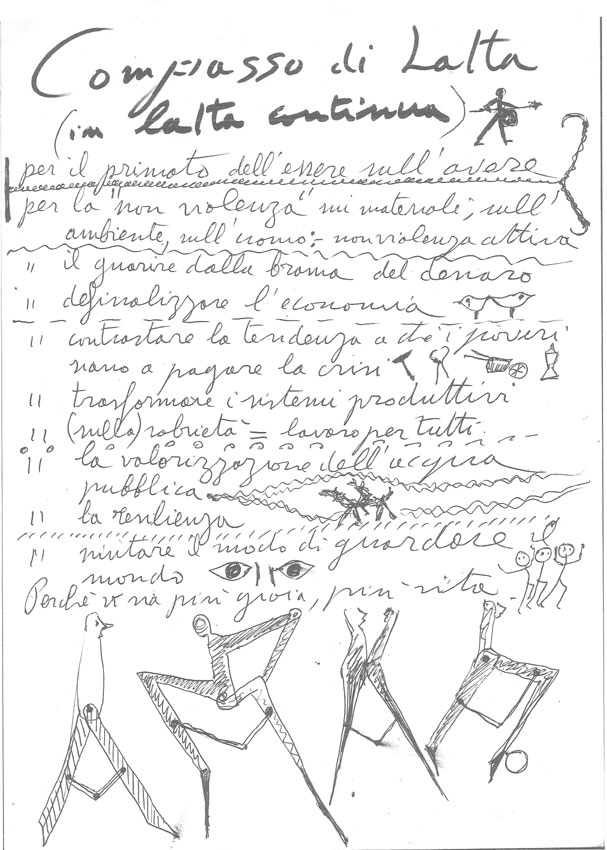 Compasso di Latta
(in latta continua)
per il primato dell'essere sull'avere
per la "non violenza" sui materiali, sull'
ambiente, sull'uomo: - nonviolenza attiva
" il guarire dalla brama del denaro
" definalizzare l'economia
" contrastare la tendenza a che i poveri
siano a pagare la crisi
" trasformare i sistemi produttivi
" (sulla) sobrietà = lavoro per tutti
" la valorizzazione dell'acqua
pubblica
" la resilienza
" mutare il modo di guardare il
mondo
Perchè vi sia più gioia, più vita